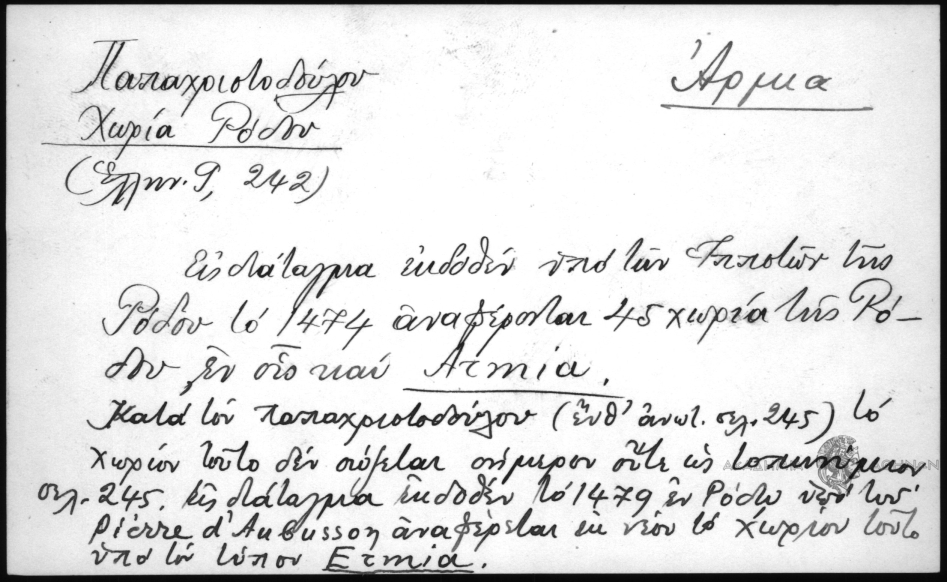 Παπαχριστοδούλου
Χωρία Ρόδου
(Ἑλλην. 9, 242)
Ἄρμια
Εἰς διάταγμα ἐκδοθέν ὑπό τῶν Ἱπποτῶν τῆς
Ρόδου τό 1474 ἀναφέρονται 45 χωρία τῆς Ρό-
δου, ἐν οἷς καί Armia.
Κατά τόν Παπαχριστοδούλου (ἔνθ' ἀνωτ. σελ. 245) τό
χωρίον τοῦτο δέν σώζεται σήμερον οὔτε ὡς τοπωνύμιον
σελ. 245. Εἰς διάταγμα ἐκδοθέν τό 1479 ἐν Ρόδῳ ὑπό τοῦ
Pierre d'Aubusson ἀναφέρεται ἐκ νέου τό χωρίον τοῦτο
ὑπό τόν τύπον Ermia.